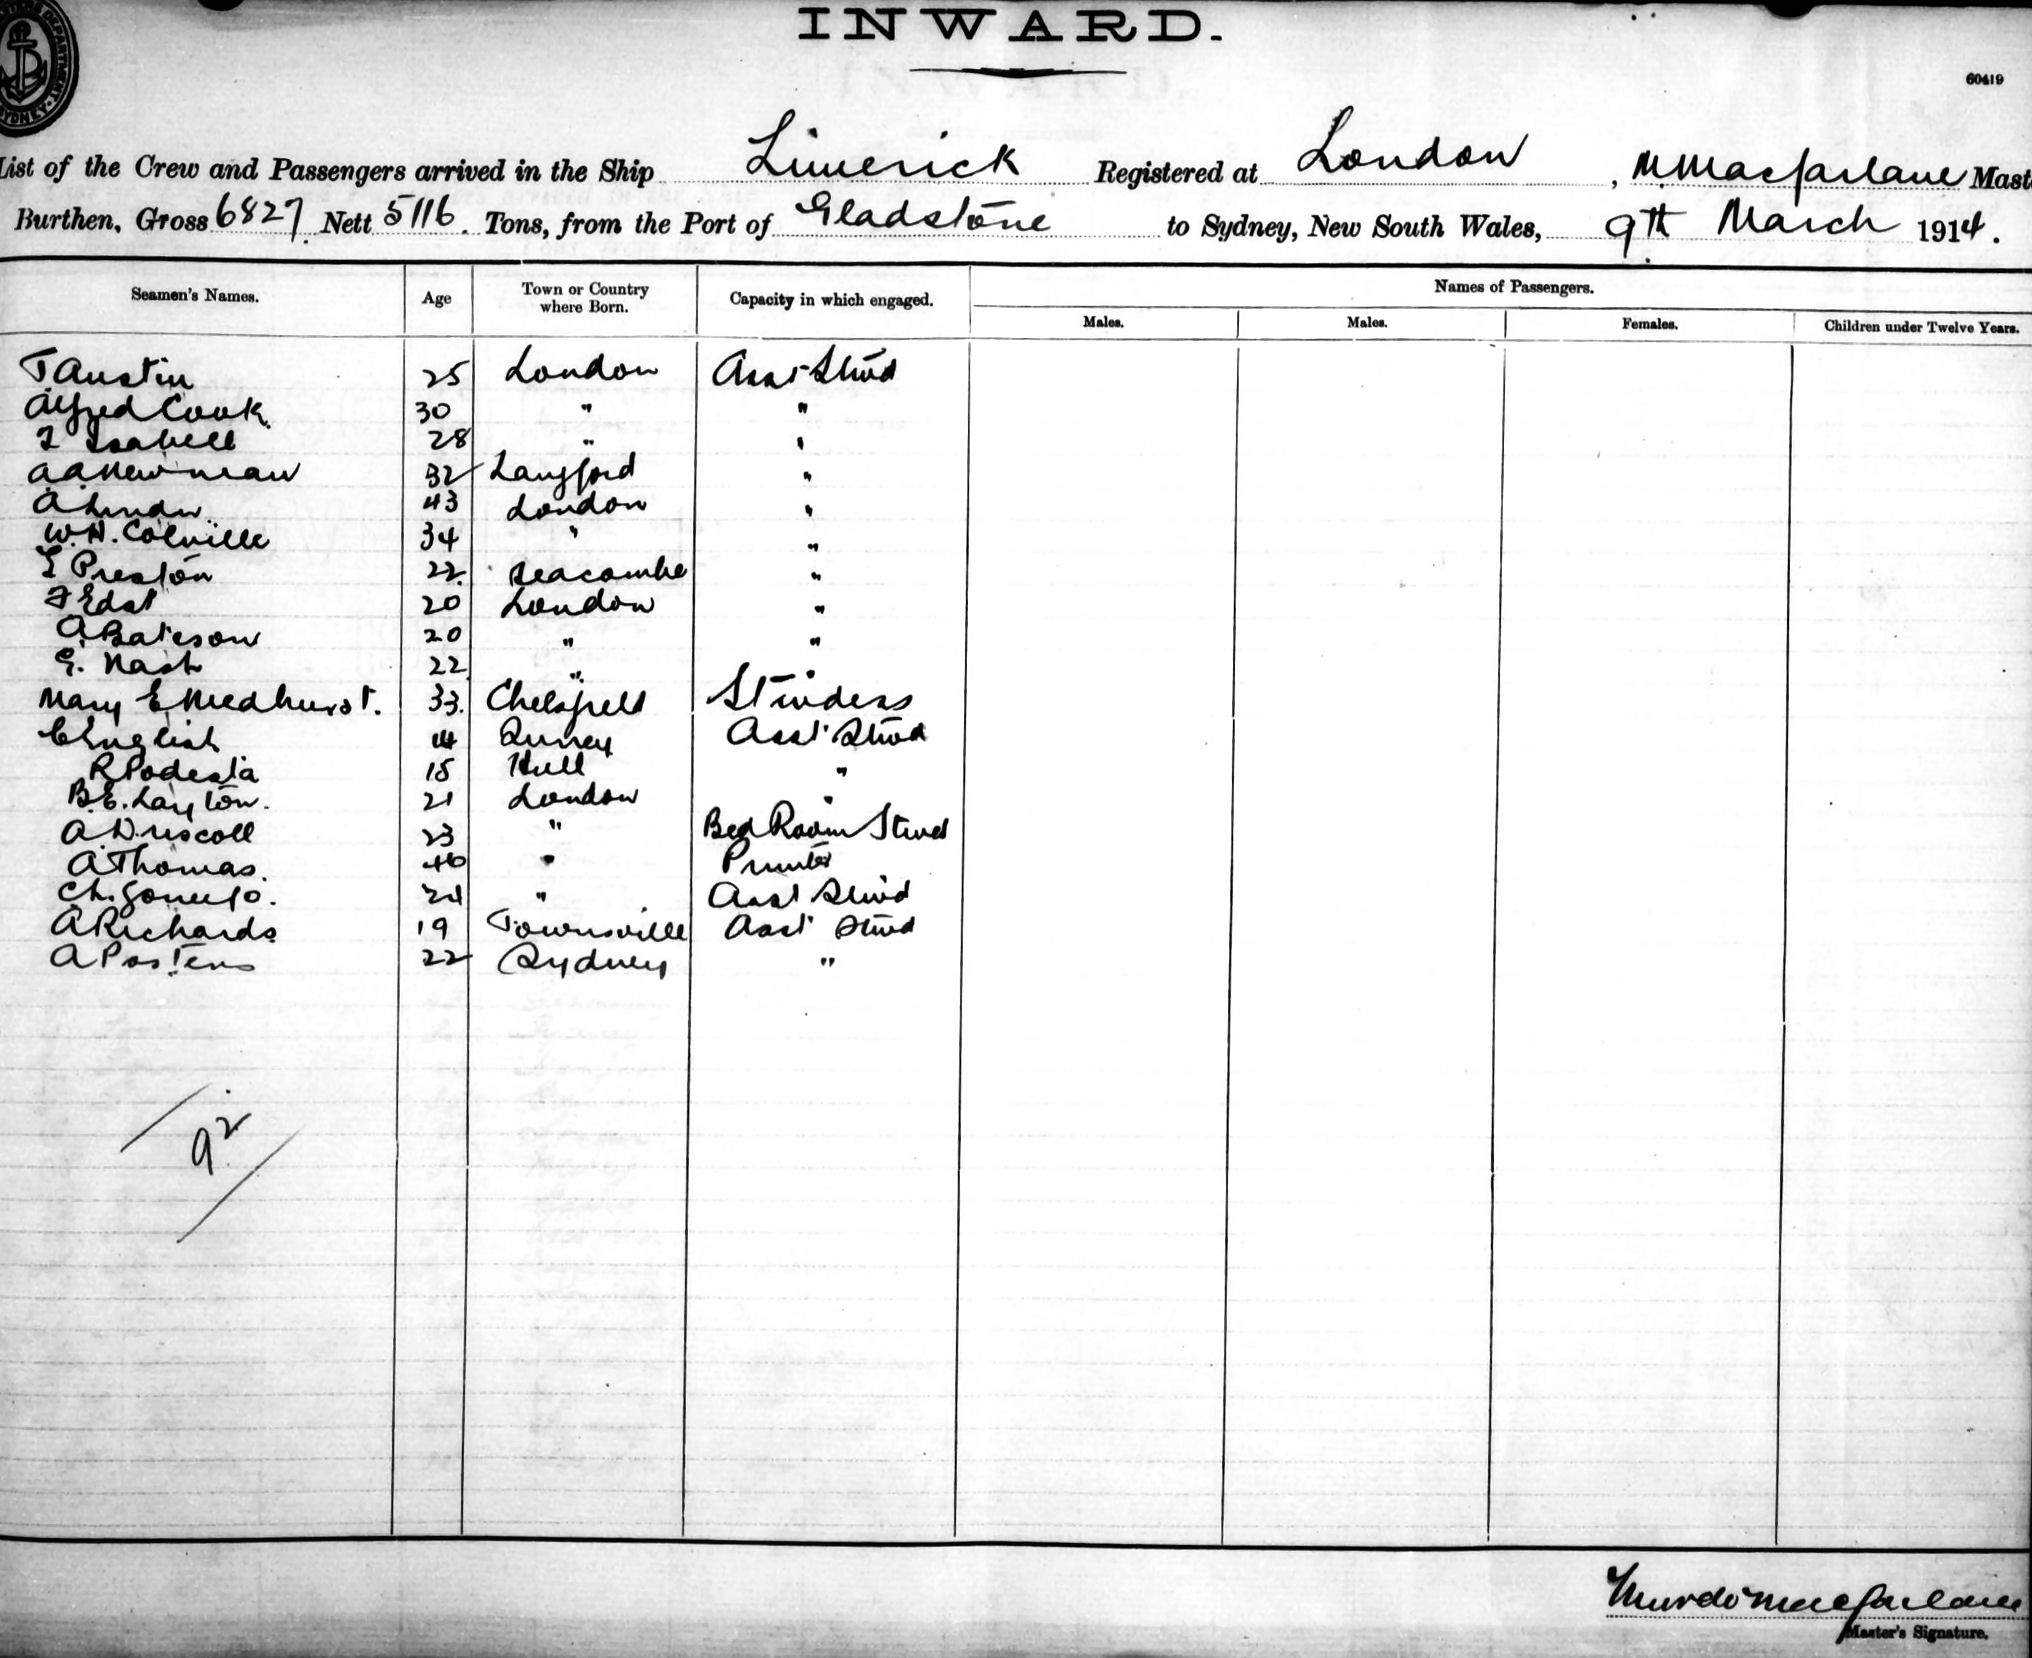 INWARD.
60419
List of the Crew and Passengers arrived in the Ship Limerick Registered at London, M. Macfarlane Mast
Burthen, Gross 6827 Nett 5116. Tons, from the Port of Gladstone to Sydney, New South Wales, 9th March 1914.
Seamen's Names. Age Town or Country where Born. Capacity in which engaged. Names of Passengers.
Males. Males. Females. Children under Twelve Years.
T Austin 25 London Asst Stwd
Alfred Cook 30 " "
Isabell 28 " "
A.A. Newman 32 Langford "
A 43 London "
W.H. Colville 34 " "
E Preston 22 Seacombe "
F Edst 20 London "
A Bateson 20 " "
E. Nash 22 " "
Mary E Medhurst. 33. Chelsfield Stwdess
C English 14 Surrey Asst Stwd
R Podesta 15 Hull "
B.E. Layton. 21 London "
A Driscoll 23 " Bed Room Stwd
A Thomas. 46 " Printer
Ch. 24 " Asst Stwd
A Richards 19 Townsville Asst Stwd
A Postens 22 Sydney "
92
Murdo Macfarlane
Master's Signature.